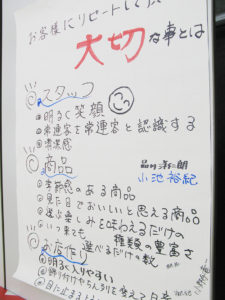 お客様にリピートして
大切な事とは
◎スタッフ
●明るく笑顔
●常連客を常連客と認識する
●清潔感
◎商品
小池裕紀
●季節感のある商品
●見た目でおいしいと思える商品
●選ぶ楽しみを味わえるだけの
種類の豊富さ
●いつ来ても
選べるだけの数
◎お店作り
●明るく入りやすい